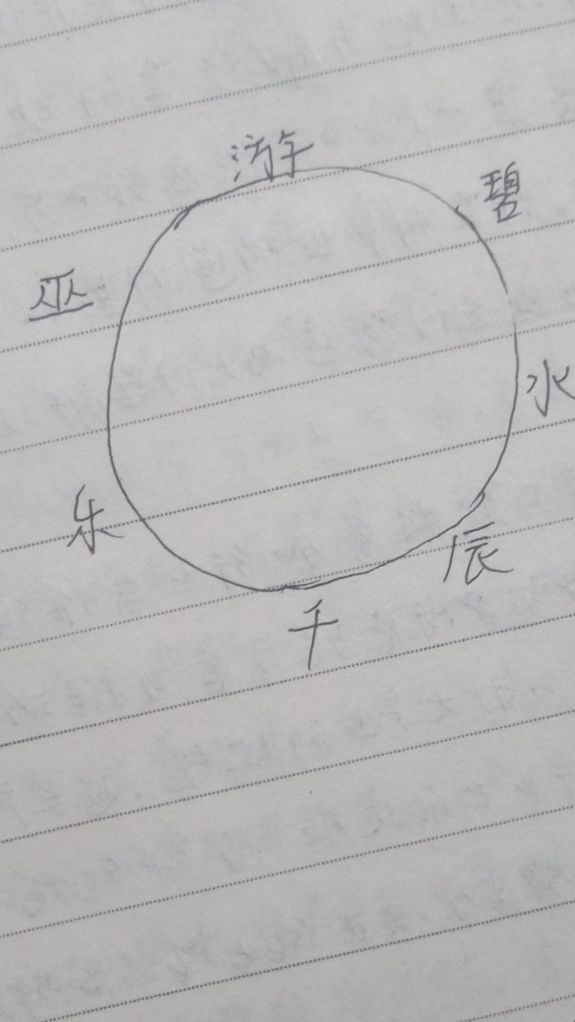 游
碧
巫
水
乐
辰
千